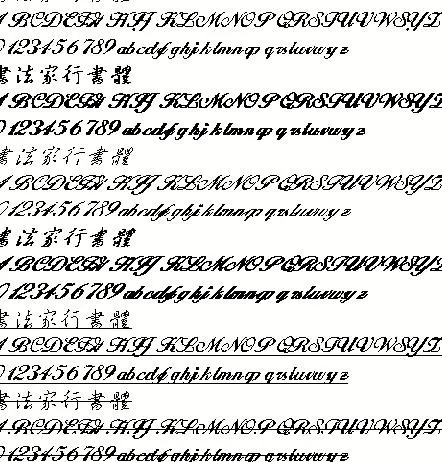 ABCDEFGHIJKLMNOPQRSTUVWXYZ
0123456789 abcdefghijklmnopqrstuvwxyz
書法家行書體
ABCDEFGHIJKLMNOPQRSTUVWXYZ
0123456789 abcdefghijklmnopqrstuvwxyz
書法家行書體
ABCDEFGHIJKLMNOPQRSTUVWXYZ
0123456789 abcdefghijklmnopqrstuvwxyz
書法家行書體
ABCDEFGHIJKLMNOPQRSTUVWXYZ
0123456789 abcdefghijklmnopqrstuvwxyz
書法家行書體
ABCDEFGHIJKLMNOPQRSTUVWXYZ
0123456789 abcdefghijklmnopqrstuvwxyz
書法家行書體
ABCDEFGHIJKLMNOPQRSTUVWXYZ
0123456789 abcdefghijklmnopqrstuvwxyz